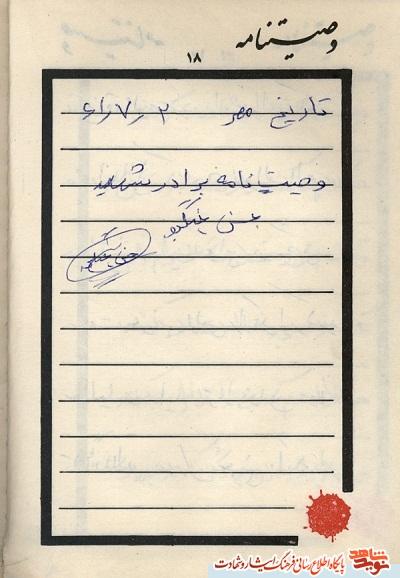 وصیتنامه
۱۸
تاریخ مهر ۲ ر۷ ر۶۱
وصیت نامه برادر شهید
حسن
نوید شاهد
پایگاه اطلاع رسانی فرهنگ ایثار و شهادت